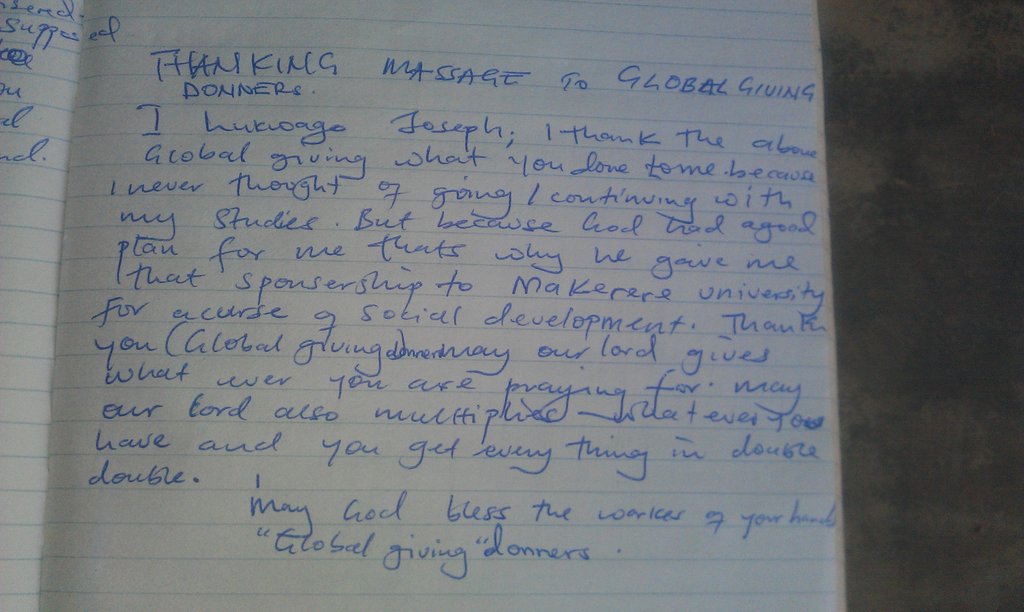 sered.
suppo ed
THANKING MASSAGE TO GLOBAL GIVING
DONNERS.
I Lukwago Joseph; I thank the above
Global giving what you done tome because
I never thought of going / continuing with
my Studies. But because God had agood
plan for me thats why he gave me
that sponsership to Makerere university
for acurse of social development. Thank
you (Global giving donners may our lord gives
what ever you are praying for. may
our lord also multiplies whatever you
have and you get every thing in double
double.
May God bless the workes of your hands
"Global giving" donners.